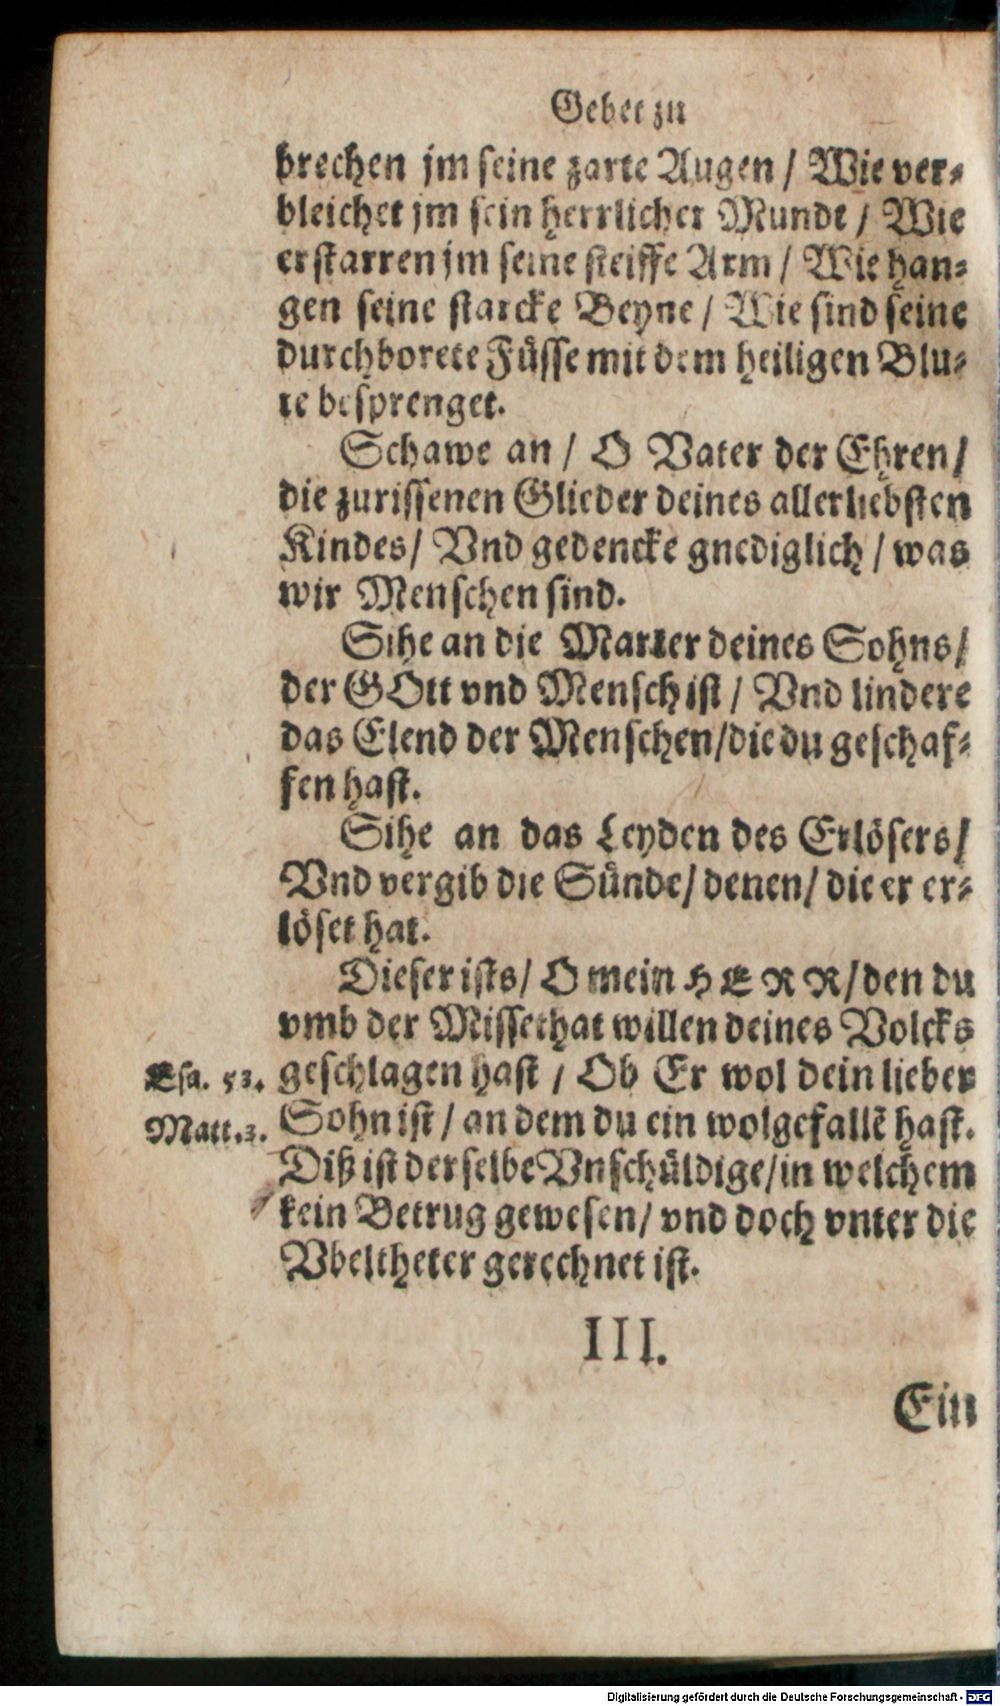 Gebet zu
brechen jm ſeine zarte Augen / Wie ver⸗
bleichet jm ſein herrlicher Mundt / Wie
erſtarren jm ſeine ſteiffe Arm / Wie han⸗
gen ſeine ſtarcke Beyne / Wie ſind ſeine
durchborete Füſſe mit dem heiligen Blu⸗
te beſprenget.
Schawe an / O Vater der Ehren /
die zuriſſenen Glieder deines allerliebſten
Kindes / Vnd gedencke gnediglich / was
wir Menſchen ſind.
Sihe an die Marter deines Sohns /
der GOtt vnd Menſch iſt / Vnd lindere
das Elend der Menſchen / die du geſchaf⸗
fen haſt.
Sihe an das Leyden des Erlöſers /
Vnd vergib die Sünde / denen / die er er⸗
löſet hat.
Dieſer iſts / O mein HERR / den du
vmb der Miſſethat willen deines Volcks
Eſa. 53. geſchlagen haſt / Ob Er wol dein lieber
Matt. 3. Sohn iſt / an dem du ein wolgefallẽ haſt.
Diß iſt derſelbe Vnſchüldige / in welchem
kein Betrug geweſen / vnd doch vnter die
Vbeltheter gerechnet iſt.
III.
Ein
Digitalisierung gefördert durch die Deutsche Forschungsgemeinschaft - DFG